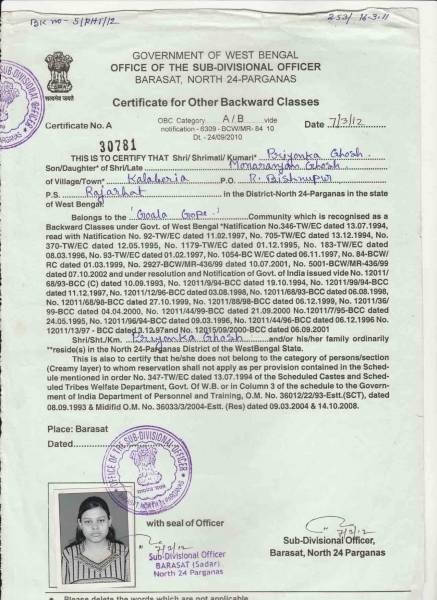 BK no - 51/PHT/12
253/ 16-3-11
GOVERNMENT OF WEST BENGAL
OFFICE OF THE SUB-DIVISIONAL OFFICER
BARASAT, NORTH 24-PARGANAS
Certificate for Other Backward Classes
Certificate No. A 30781
OBC Category A/B vide
notification - 6309 -BCW/MR- 84 10
Dt. - 24/09/2010
Date 7/3/12
THIS IS TO CERTIFY THAT Shri/ Shrimati/ Kumari* Priyonka Ghosh.
Son/Daughter* of Shri/Late Monaranjan Ghosh
of Village/Town* Kalaboria P.O. R. Bishnupur
P.S. Rajarhat in the District-North 24-Parganas in the state
of West Bengal.
Belongs to the 'Goala Gope' Community which is recognised as a
Backward Classes under Govt. of West Bengal *Notification No.346-TW/EC dated 13.07.1994,
read with Natification No. 92-TW/EC dated 11.02.1997, No. 705-TW/EC dated 13.12.1994, No.
370-TW/EC dated 12.05.1995, No. 1179-TW/EC dated 01.12.1995, No. 183-TW/EC dated
08.03.1996, No. 93-TW/EC dated 01.02.1997, No. 1054-BC W/EC dated 06.11.1997, No. 84-BCW/
RC dated 01.03.1999, No. 2927-BCW/MR-436/99 dated 10.07.2001, No. 5001-BCW/MR-436/99
dated 07.10.2002 and under resolution and Notification of Govt. of India issued vide No. 12011/
68/93-BCC (C) dated 10.09.1993, No. 12011/9/94-BCC dated 19.10.1994, No. 12011/99/94-BCC
dated 11.12.1997, No. 12011/12/96-BCC dated 03.08.1998, No. 12011/68/93-BCC dated 06.08.1998,
No. 12011/68/98-BCC dated 27.10.1999, No. 12011/88/98-BCC dated 06.12.1999, No. 12011/36/
99-BCC dated 04.04.2000, No. 12011/44/99-BCC dated 21.09.2000 No.12011/7/95-BCC dated
24.05.1995, No. 12011/96/94-BCC dated 09.03.1996, No. 12011/44/96-BCC dated 06.12.1996 No.
12011/13/97 - BCC dated 3.12.97and No. 12015/09/2000-BCC dated 06.09.2001
Shri/Sht./Km. Priyonka Ghosh and/or his/her family ordinarily
**reside(s) in the North 24-Parganas District of the WestBengal State.
This is also to certify that he/she does not belong to the category of persons/section
(Creamy layer) to whom reservation shall not apply as per provision contained in the Schedule
mentioned in order No. 347-TW/EC dated 13.07.1994 of the Scheduled Castes and Sched-
uled Tribes Welfate Department, Govt. Of W.B. or in Column 3 of the schedule to the Govern-
ment of India Department of Personnel and Training, O.M. No. 36012/22/93-Estt.(SCT), dated
08.09.1993 & Midifid O.M. No. 36033/3/2004-Estt. (Res) dated 09.03.2004 & 14.10.2008.
Place: Barasat
Dated
OFFICE OF THE SUB-DIVISIONAL OFFICER
BARASAT NORTH 24 PARGANAS
with seal of Officer
7/3/12
Sub-Divisional Officer
BARASAT (Sadar)
North 24 Parganas
7/3/12
Sub-Divisional Officer,
Barasat, North 24 Parganas
Please delete the words which are not applicable